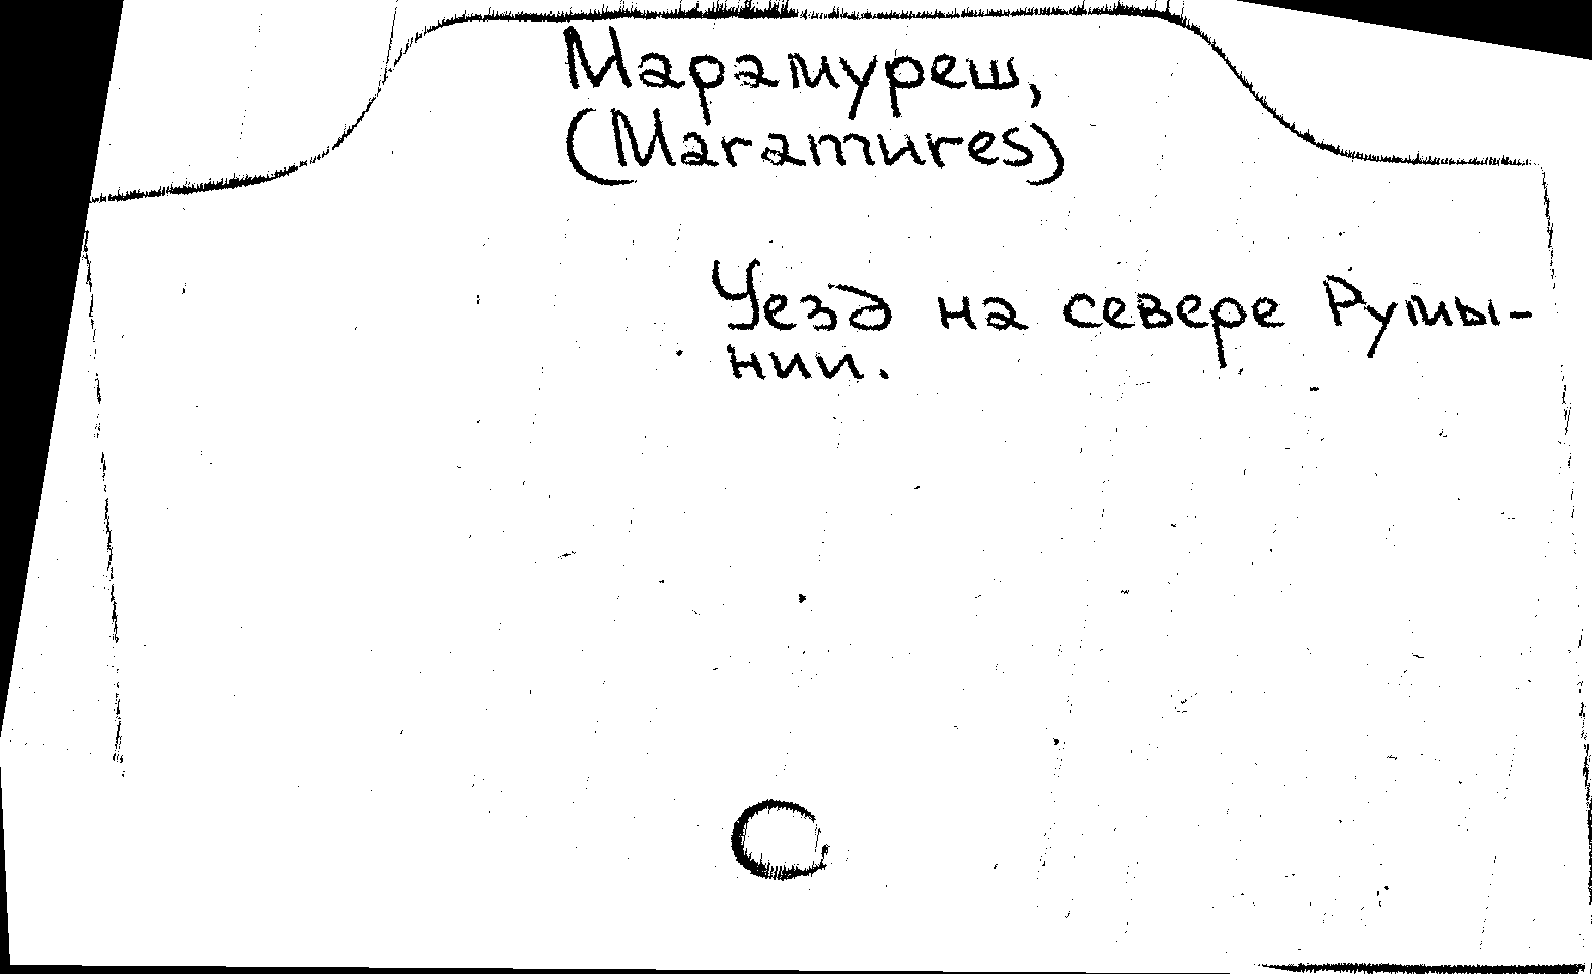 Марамуреш,
(Maramures)
Уезд на севере Румы-
нии.